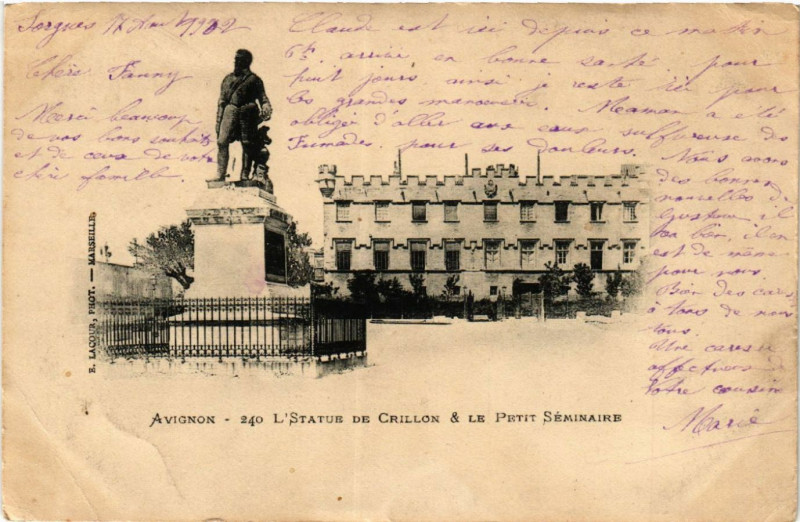 Sorgues 17 1902
Chère Fanny
Merci beaucoup
de vos bons souhaits
et de ceux de votre
chère famille.
Claude est ici depuis ce matin
6h arrivé en bonne santé pour
huit jours ainsi je reste ici pour
les grandes manoeuvres. Maman a été
obligée d'aller aux eaux sulfureuse des
Fumades pour ses douleurs.
Nous avons
des bonnes
nouvelles de
Gustave il
va bien, il en
est de même
pour nous.
Bien des
à tous de nous
tous.
Une caresse
affectueuse
Votre cousine
Marie
E. LACOUR, PHOT. — MARSEILLE,
AVIGNON - 240 L'STATUE DE CRILLON & LE PETIT SÉMINAIRE